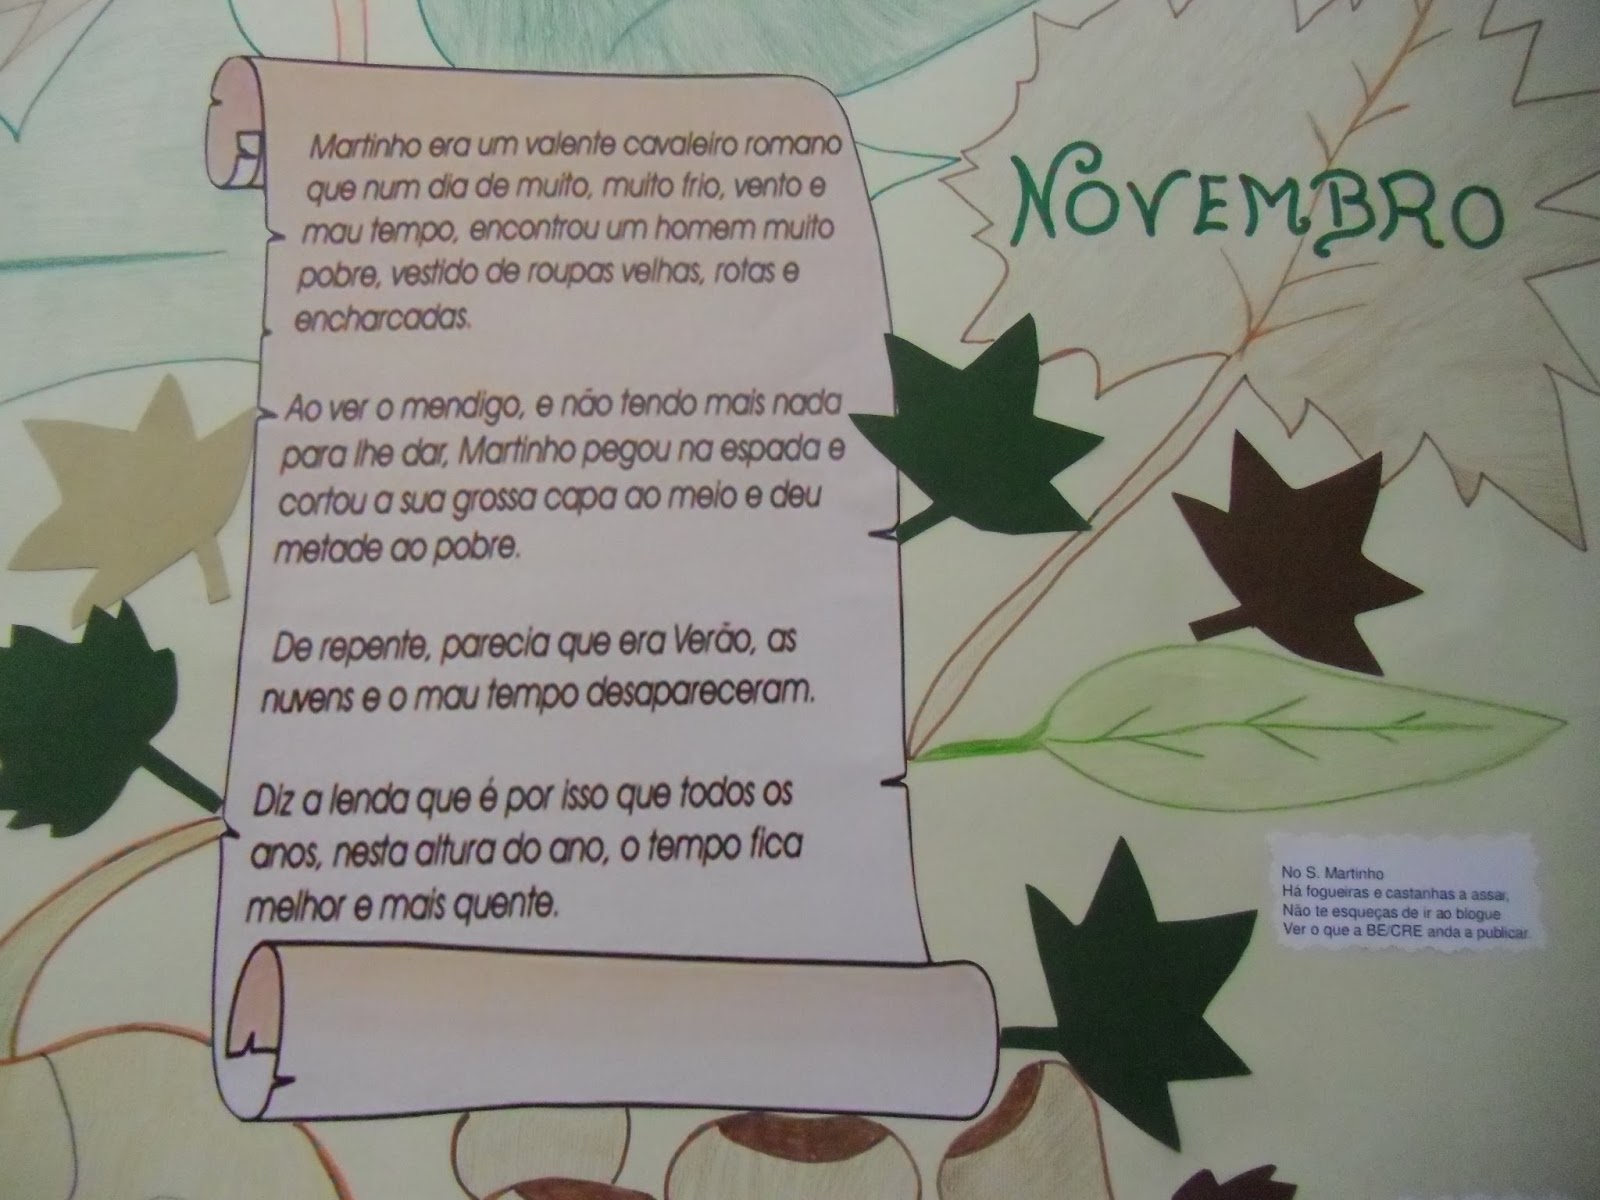 Martinho era um valente cavaleiro romano
que num dia de muito, muito frio, vento e
mau tempo, encontrou um homem muito
pobre, vestido de roupas velhas, rotas e
encharcadas.
Ao ver o mendigo, e não tendo mais nada
para lhe dar, Martinho pegou na espada e
cortou a sua grossa capa ao meio e deu
metade ao pobre.
De repente, parecia que era Verão, as
nuvens e o mau tempo desapareceram.
Diz a lenda que é por isso que todos os
anos, nesta altura do ano, o tempo fica
melhor e mais quente.
NOVEMBRO
No S. Martinho
Há fogueiras e castanhas a assar,
Não te esqueças de ir ao blogue
Ver o que a BE/CRE anda a publicar.